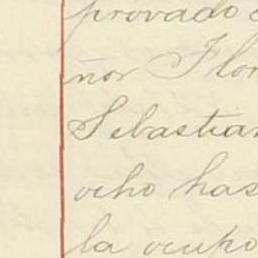 provado
ñor Flor
Sebastian
ocho has
la ocupo